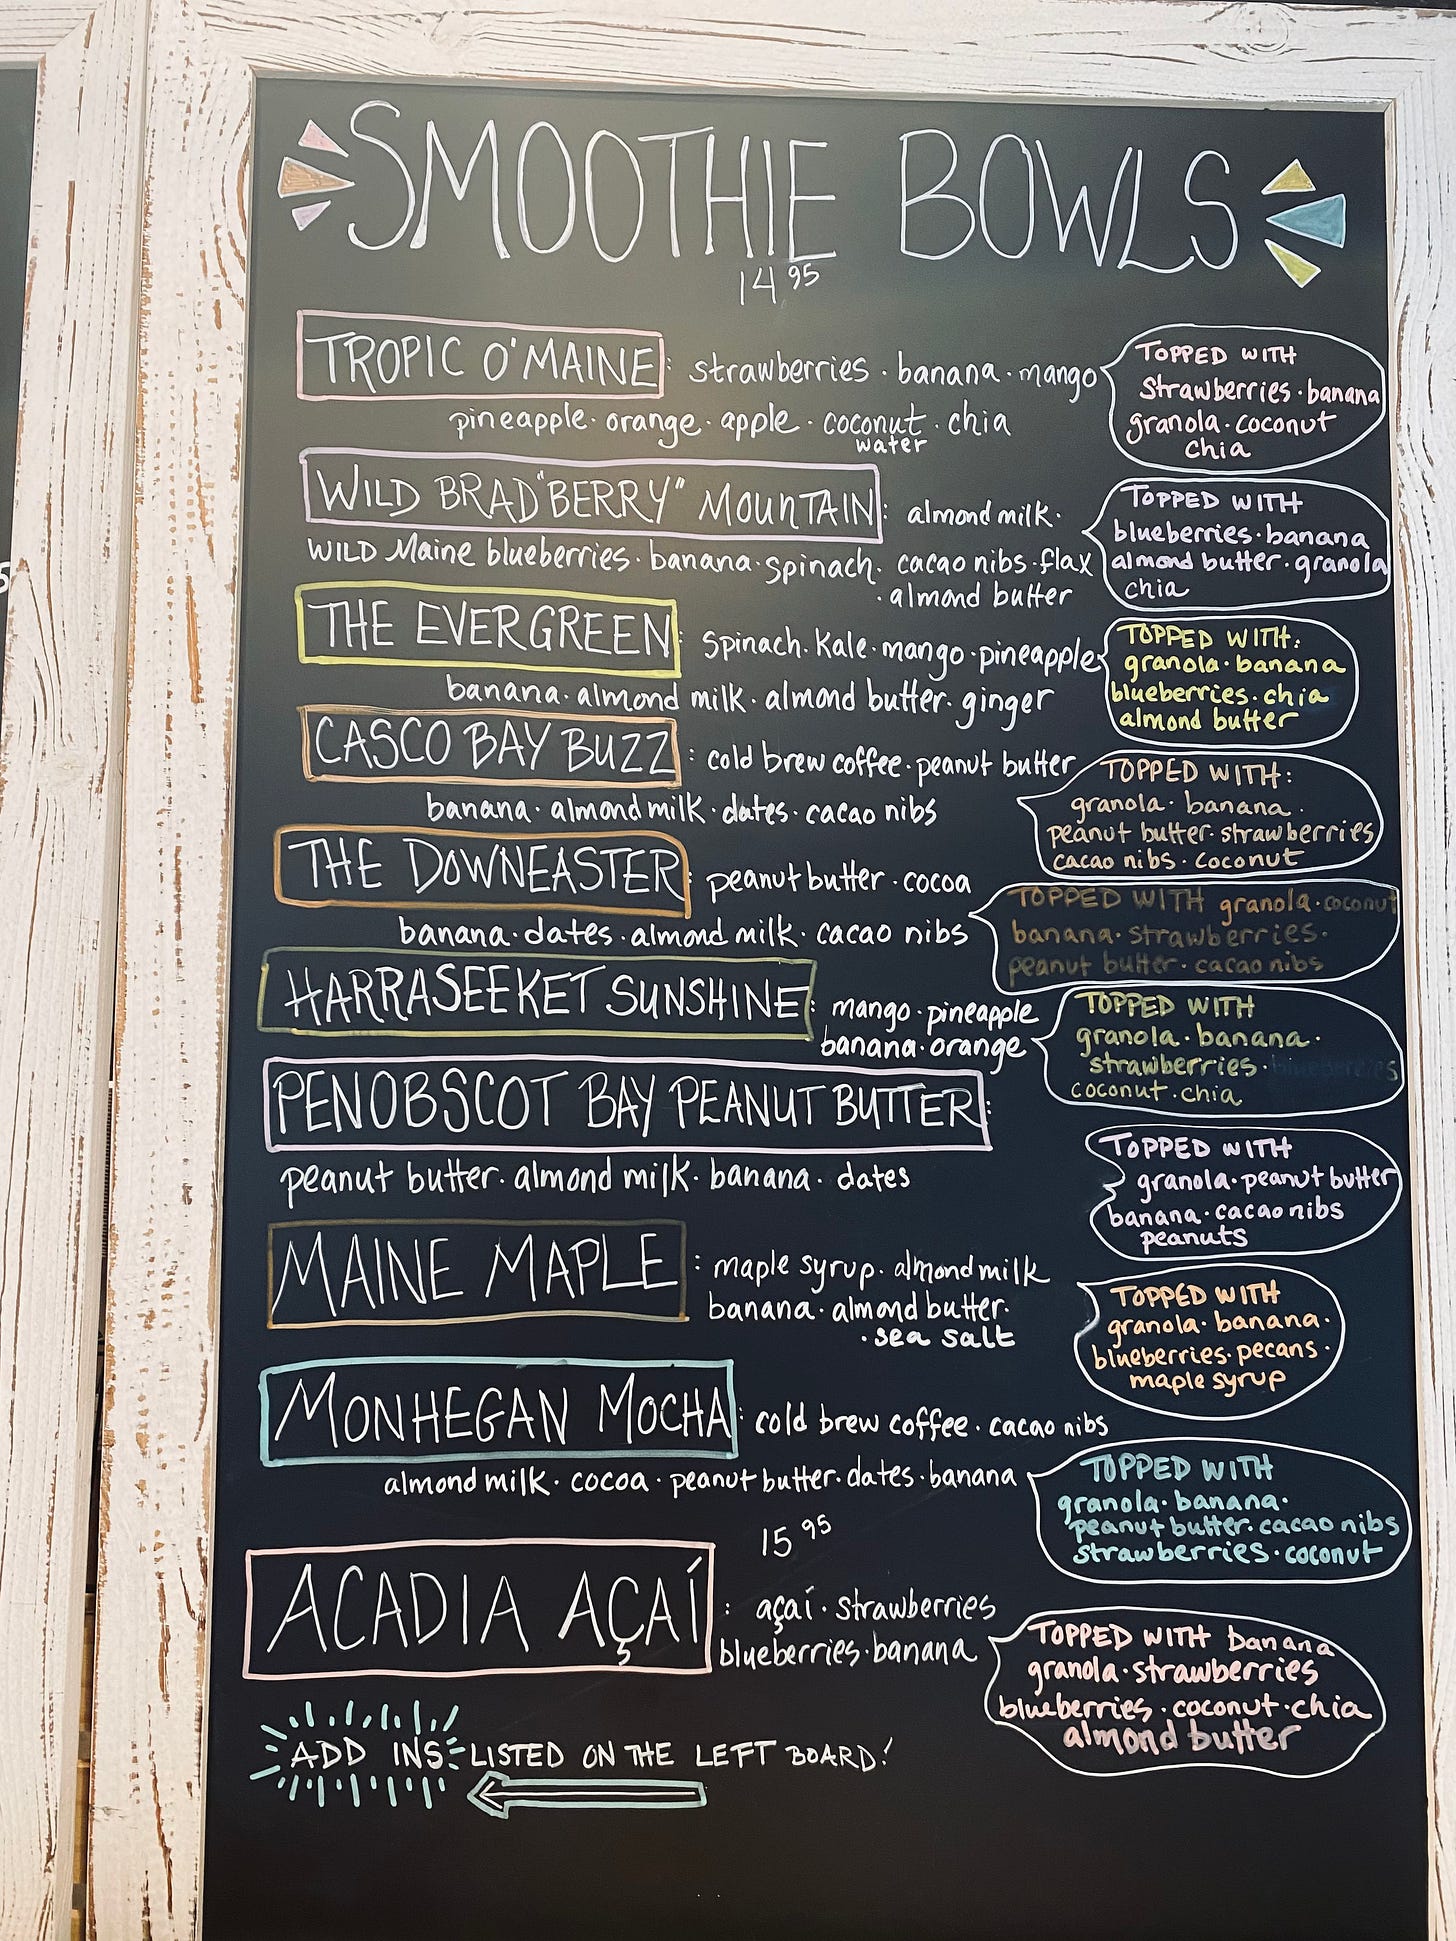 SMOOTHIE BOWLS
14.95
TROPIC O'MAINE: strawberries · banana · mango
pineapple · orange · apple · coconut · chia
water
TOPPED WITH
strawberries · banana
granola · coconut
chia
WILD BRAD"BERRY" MOUNTAIN: almond milk ·
WILD Maine blueberries · banana · spinach · cacao nibs · flax
· almond butter
TOPPED WITH
blueberries · banana
almond butter · granola
chia
THE EVERGREEN: spinach · kale · mango · pineapple
banana · almond milk · almond butter · ginger
TOPPED WITH:
granola · banana
blueberries · chia
almond butter
CASCO BAY BUZZ: cold brew coffee · peanut butter
banana · almond milk · dates · cacao nibs
TOPPED WITH:
granola · banana ·
peanut butter · strawberries
cacao nibs · coconut
THE DOWNEASTER: peanut butter · cocoa
banana · dates · almond milk · cacao nibs
TOPPED WITH granola · coconut
banana · strawberries ·
peanut butter · cacao nibs
HARRASEEKET SUNSHINE: mango · pineapple
banana · orange
TOPPED WITH
granola · banana ·
strawberries · blueberries
coconut · chia
PENOBSCOT BAY PEANUT BUTTER:
peanut butter · almond milk · banana · dates
TOPPED WITH
granola · peanut butter
banana · cacao nibs
peanuts
MAINE MAPLE: maple syrup · almond milk
banana · almond butter ·
· sea salt
TOPPED WITH
granola · banana ·
blueberries · pecans ·
maple syrup
MONHEGAN MOCHA: cold brew coffee · cacao nibs
almond milk · cocoa · peanut butter · dates · banana
TOPPED WITH
granola · banana ·
peanut butter · cacao nibs
strawberries · coconut
15.95
ACADIA AÇAÍ: açaí · strawberries
blueberries · banana
TOPPED WITH banana
granola · strawberries
blueberries · coconut · chia
almond butter
ADD INS LISTED ON THE LEFT BOARD!